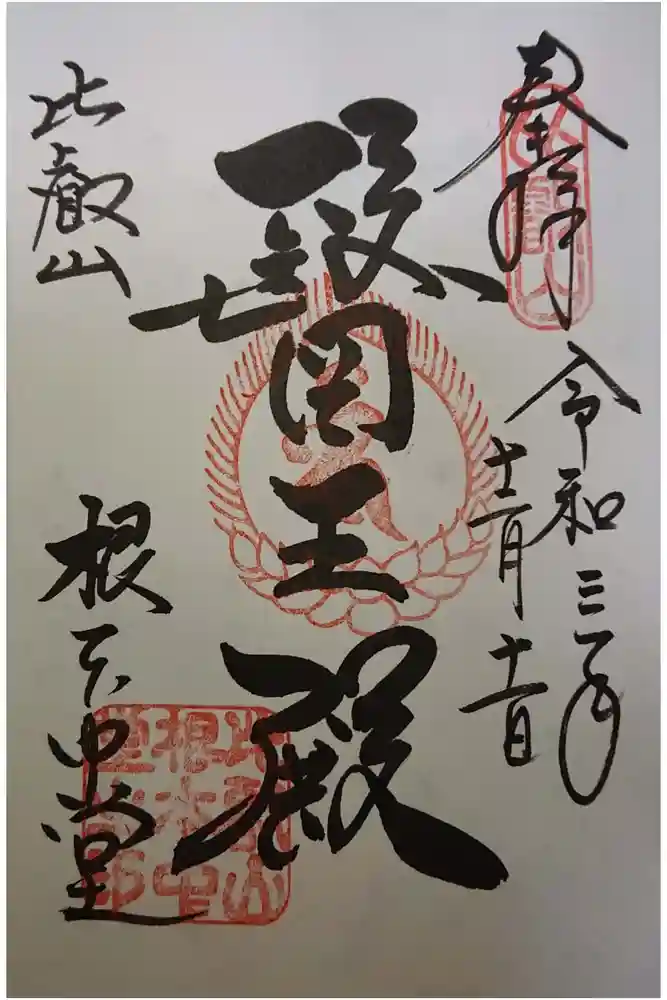 奉拝
令和三年
十二月十一日
醫王殿
比叡山
根本中堂